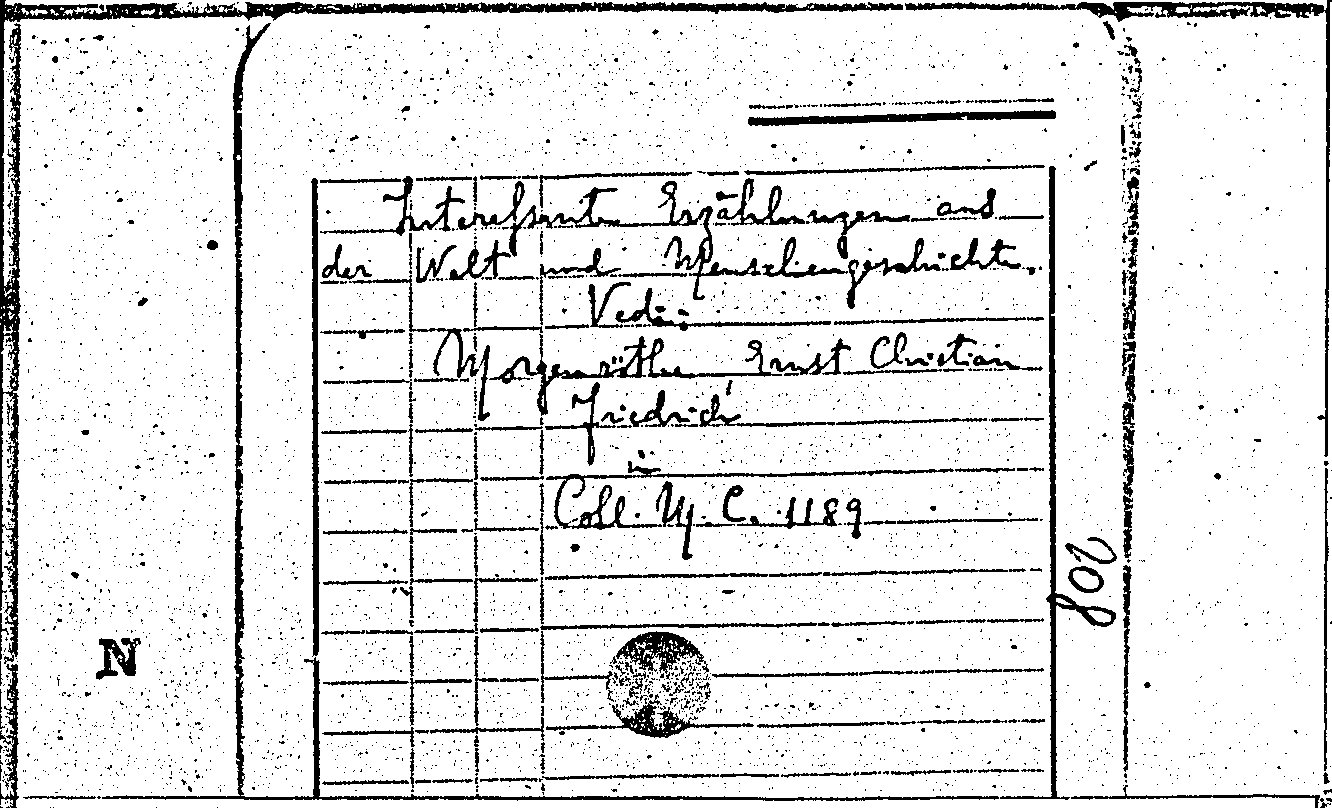 Interessante Erzählungen aus
der Welt und Menschengeschichte.
Vedi:
Morgenröthe Ernst Christian
Friedrich
in
Coll. M. C. 1189
802
N